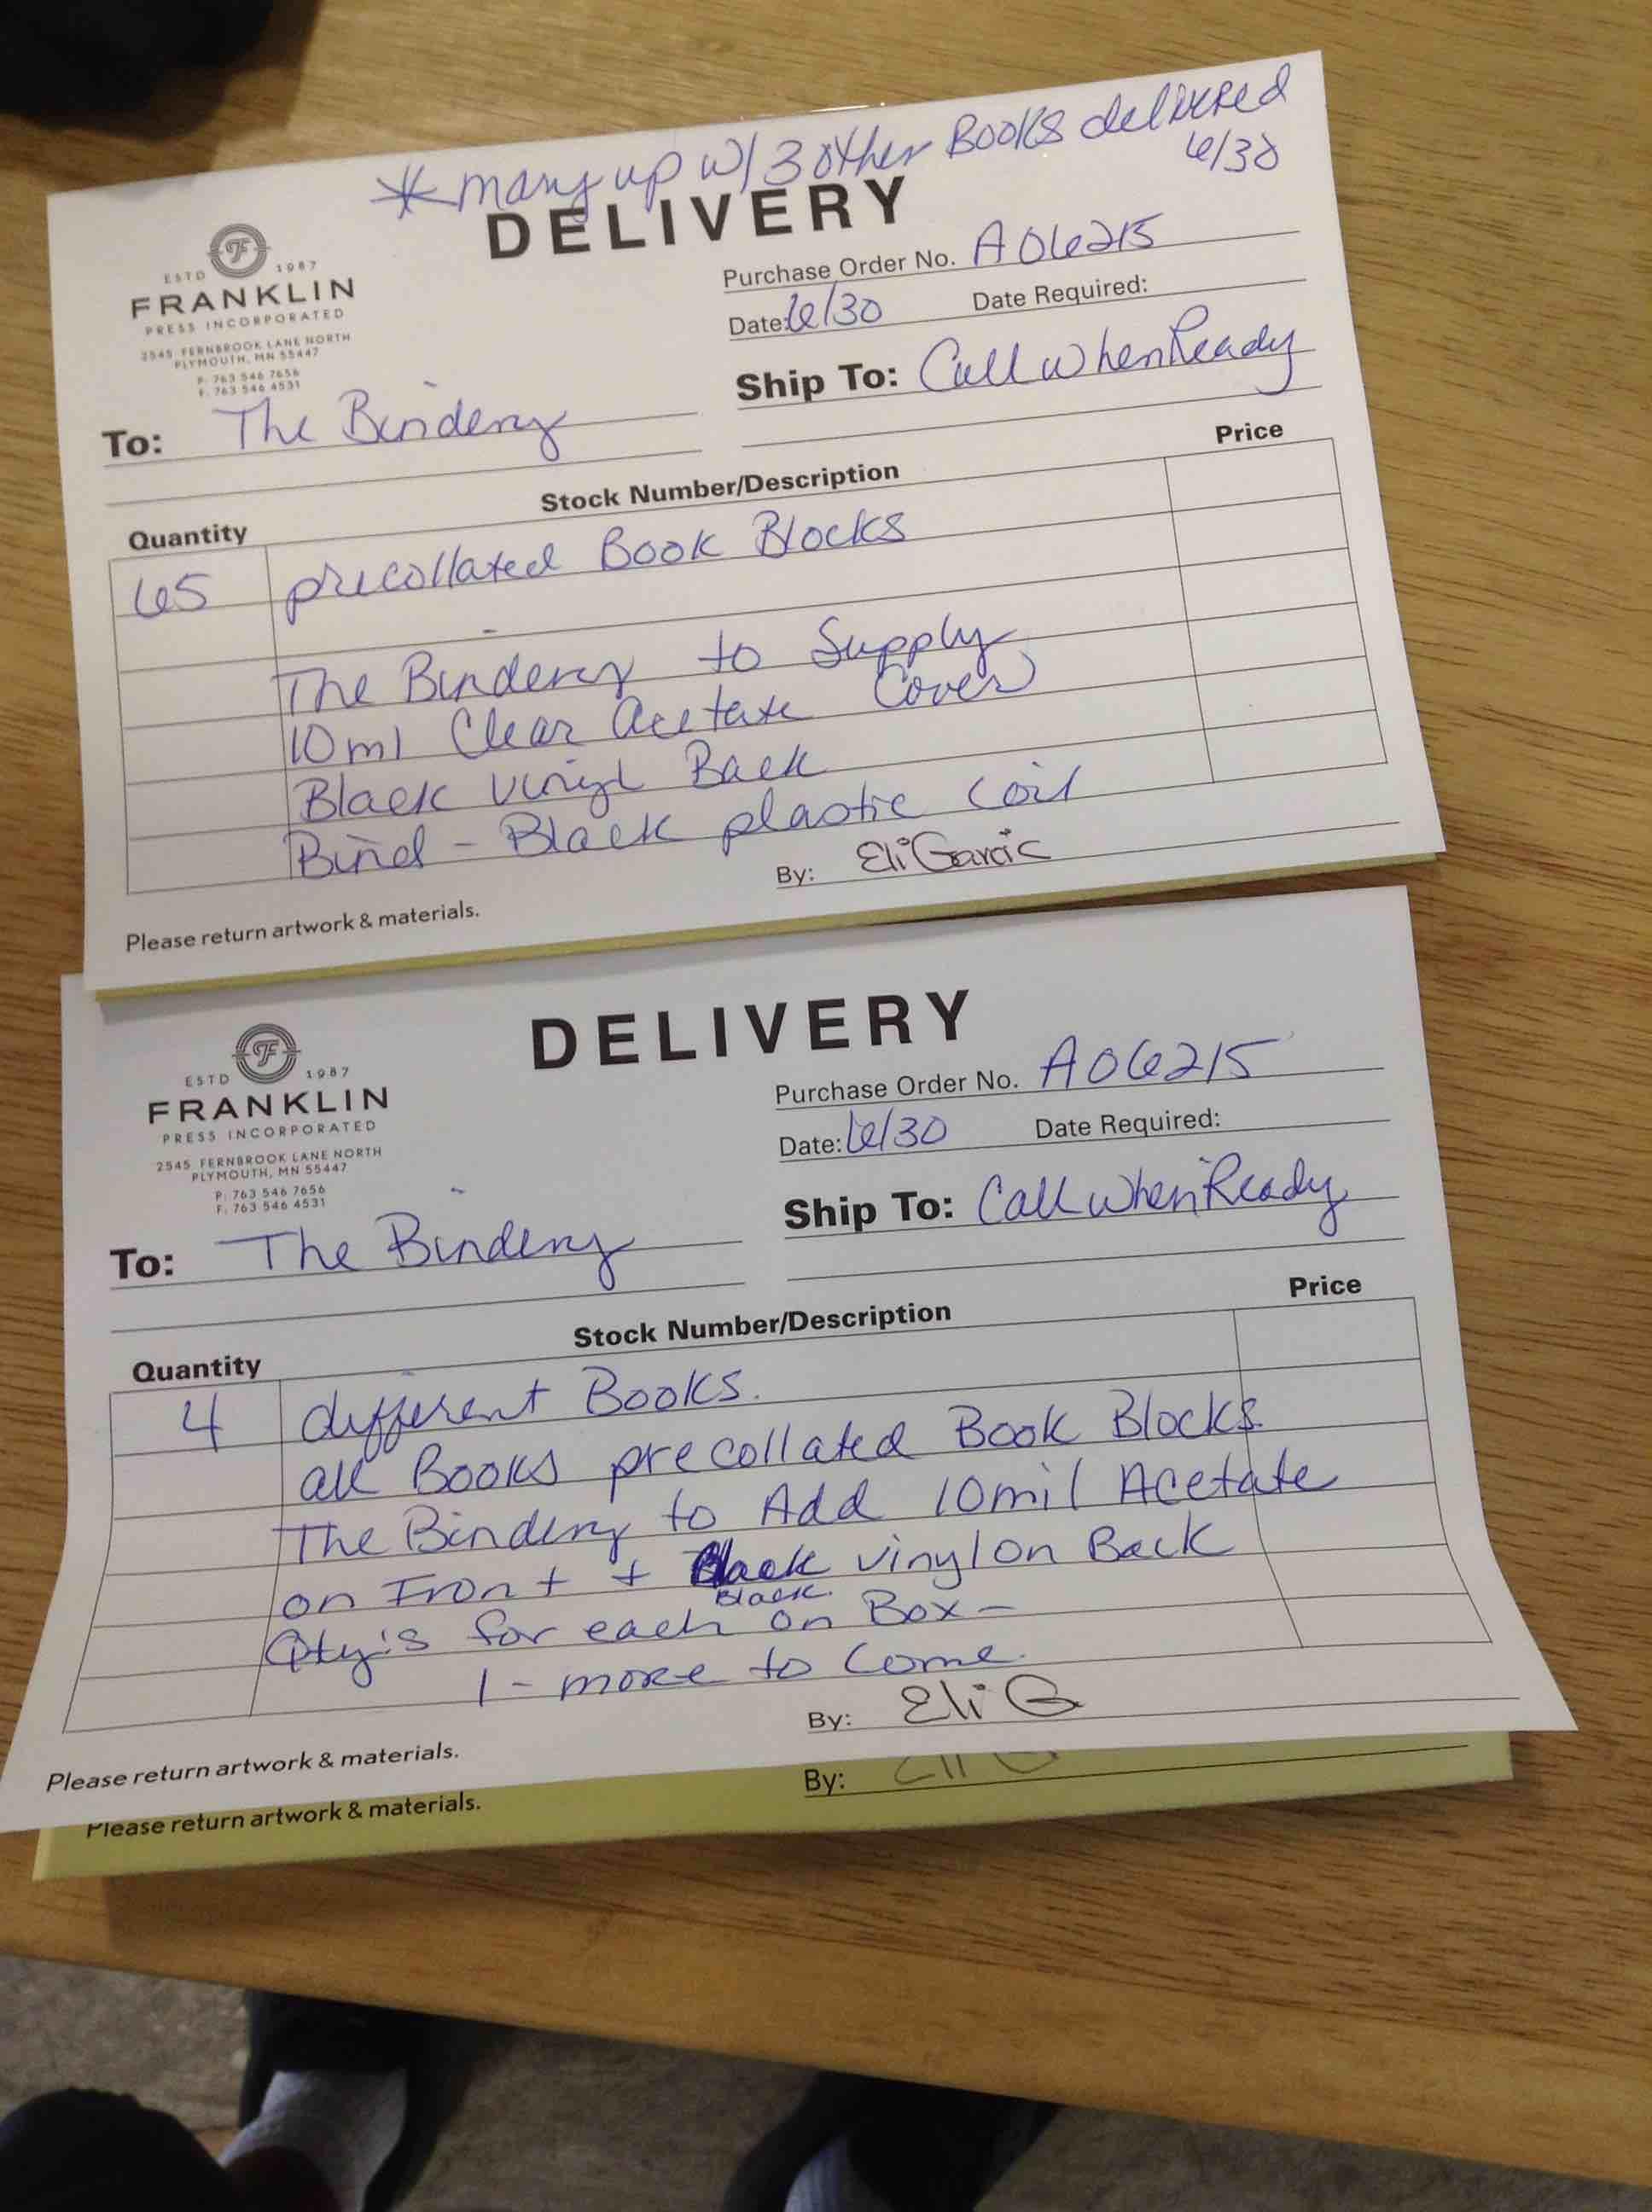 * marry up w/ 3 other Books delivered
6/30
DELIVERY
F
ESTD 1987
FRANKLIN
PRESS INCORPORATED
2545 FERNBROOK LANE NORTH
PLYMOUTH, MN 55447
P: 763 546 7656
F: 763 546 4531
Purchase Order No. A06215
Date: 6/30 Date Required:
Ship To: Call when Ready
To: The Bindery
Quantity Stock Number/Description Price
65 precollated Book Blocks
The Bindery to Supply
10ml Clear Acetate Cover
Black vinyl Back
Bind - Black plastic coil
By: Eli Garcia
Please return artwork & materials.
DELIVERY
F
ESTD 1987
FRANKLIN
PRESS INCORPORATED
2545 FERNBROOK LANE NORTH
PLYMOUTH, MN 55447
P: 763 546 7656
F: 763 546 4531
Purchase Order No. A06215
Date: 6/30 Date Required:
Ship To: Call when Ready
To: The Bindery
Quantity Stock Number/Description Price
4 different Books.
all Books precollated Book Blocks.
The Bindery to Add 10mil Acetate
on Front + Black vinyl on Back
Black
Qty's for each on Box -
1 - more to Come.
By: Eli G
Please return artwork & materials.
By: Eli G
Please return artwork & materials.